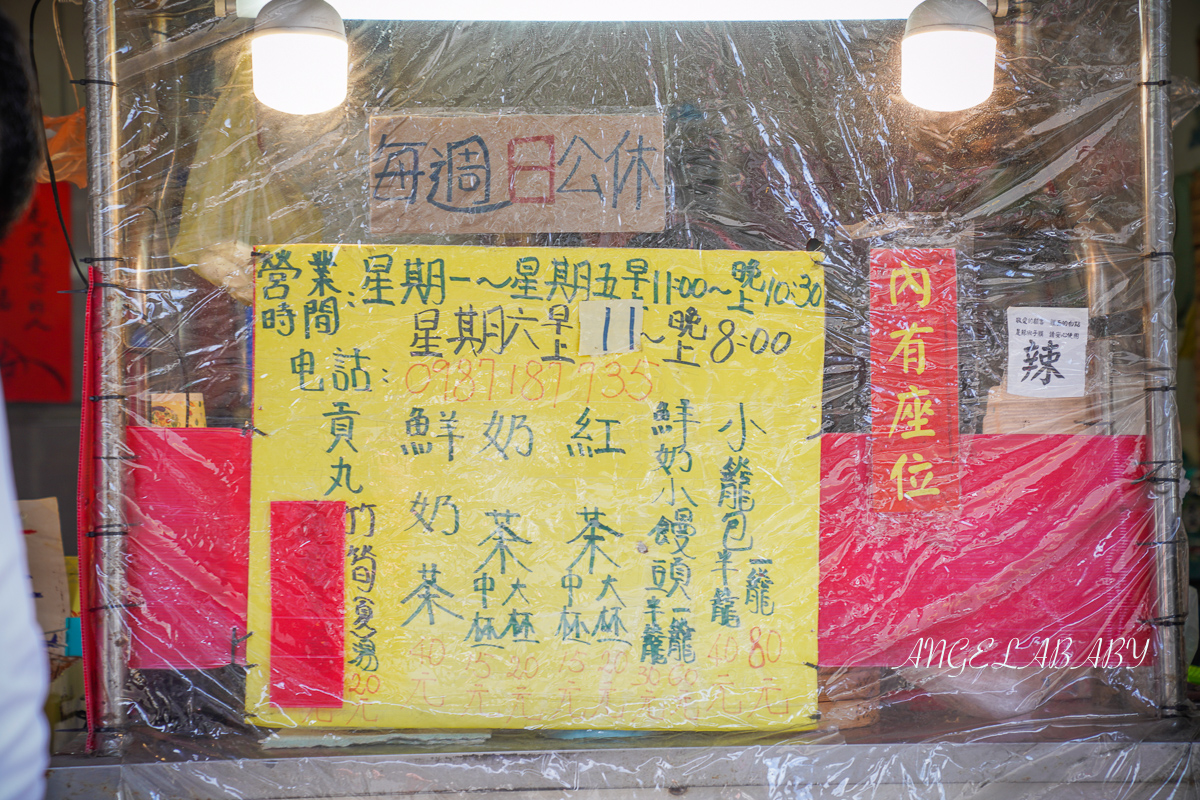 每週日公休
營業時間:星期一~星期五早上11:00~晚上10:30
星期六早上11~晚上8:00
電話:0937187735
小籠包半籠40元一籠80元
鮮奶小饅頭半籠30元一籠60元
紅茶中杯15元大杯20元
奶茶中杯15元大杯20元
鮮奶茶40元
貢丸
竹筍魚湯20元
內有座位
辣
ANGELABABY